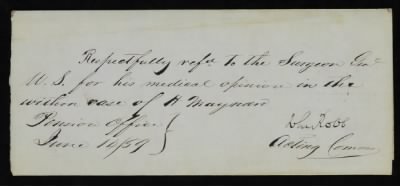 Respectfully refd. to the Surgeon Genl.
U. S. for his medical opinion in the
within case of H Maynard
Pension Office
June 10/59
Wm Robb
Acting Comm